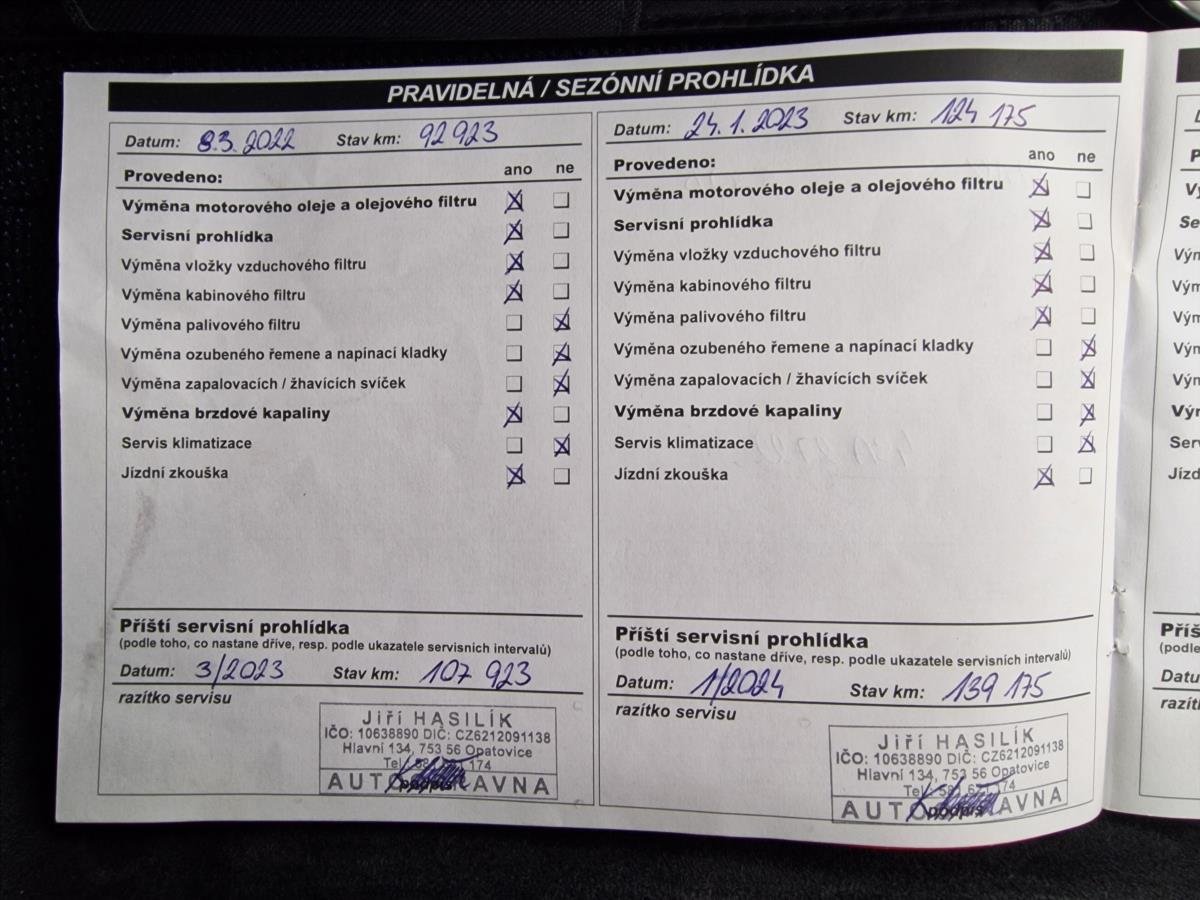 PRAVIDELNÁ / SEZÓNNÍ PROHLÍDKA
Datum: 8.3.2022 Stav km: 92 923
Provedeno: ano ne
Výměna motorového oleje a olejového filtru
Servisní prohlídka
Výměna vložky vzduchového filtru
Výměna kabinového filtru
Výměna palivového filtru
Výměna ozubeného řemene a napínací kladky
Výměna zapalovacích / žhavících svíček
Výměna brzdové kapaliny
Servis klimatizace
Jízdní zkouška
Příští servisní prohlídka
(podle toho, co nastane dříve, resp. podle ukazatele servisních intervalů)
Datum: 3/2023 Stav km: 107 923
razítko servisu
Jiří HASILÍK
IČO: 10638890 DIČ: CZ6212091138
Hlavní 134, 753 56 Opatovice
Tel. 174
podpis
Datum: 24.1.2023 Stav km: 124 175
Provedeno: ano ne
Výměna motorového oleje a olejového filtru
Servisní prohlídka
Výměna vložky vzduchového filtru
Výměna kabinového filtru
Výměna palivového filtru
Výměna ozubeného řemene a napínací kladky
Výměna zapalovacích / žhavících svíček
Výměna brzdové kapaliny
Servis klimatizace
Jízdní zkouška
Příští servisní prohlídka
(podle toho, co nastane dříve, resp. podle ukazatele servisních intervalů)
Datum: 1/2024 Stav km: 139 175
razítko servisu
Jiří HASILÍK
IČO: 10638890 DIČ: CZ6212091138
Hlavní 134, 753 56 Opatovice
Tel. 174
podpis